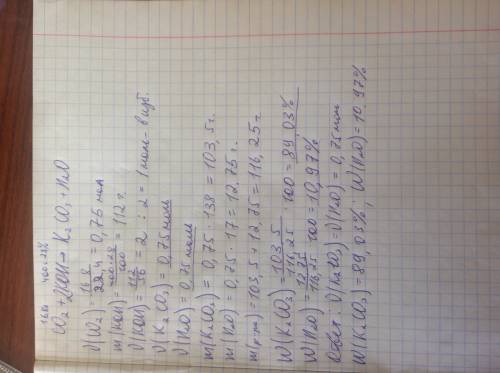 16,8 400×28%
CO2 + 2KOH → K2CO3 + H2O
V(CO2) = 16,8/22,4 = 0,75 мол
m(KOH) = 400×28/100 = 112 г.
V(KOH) = 112/56 = 2 : 2 = 1 моль - в изб.
V(K2CO3) = 0,75 моль
V(H2O) = 0,75 моль
m(K2CO3) = 0,75 · 138 = 103,5 г.
m(H2O) = 0,75 · 17 = 12.75 г.
m(р-ра) = 103,5 + 12,75 = 116,25 г
W(K2CO3) = 103,5/116,25 · 100 = 89,03%
W(H2O) = 12,75/116,25 · 100 = 10,97%
Ответ: V(K2CO3) = V(H2O) = 0,75 моль
W(K2CO3) = 89,03% ; W(H2O) = 10.97%